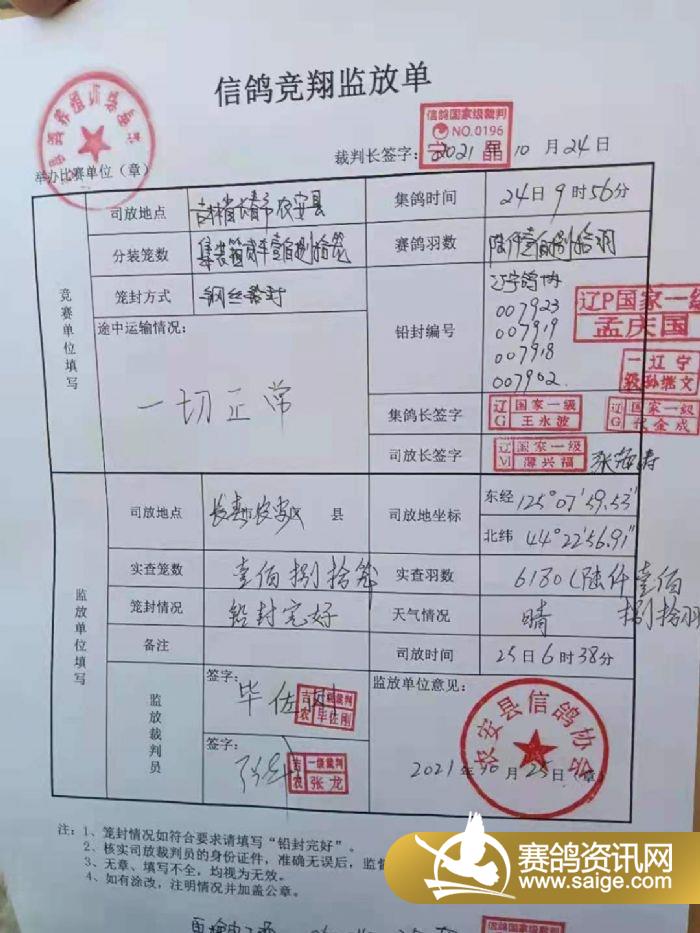 信鸽竞翔监放单
信鸽国家级裁判
NO.0196
裁判长签字：
2021 10月24日
举办比赛单位（章）
竞赛单位填写
司放地点 吉林省长春市农安县 集鸽时间 24日9时56分
分装笼数 赛鸽羽数 陆仟壹佰捌拾羽
笼封方式 钢丝铅封 铅封编号 辽宁鸽协
007923
007919
007918
007902
辽P国家一级
孟庆国
一辽宁
级孙继文
途中运输情况：
一切正常
集鸽长签字 辽G 国家一级 王永波
辽G 国家一级 金成
司放长签字 辽M 国家一级 潭兴福 张海涛
监放单位填写
司放地点 长春市农安县 司放地坐标 东经 125°07′59.53″
北纬 44°22′56.91″
实查笼数 壹佰捌拾笼 实查羽数 6180(陆仟壹佰
捌拾羽
笼封情况 铅封完好 天气情况 晴
备注 司放时间 25日6时38分
监放裁判员
签字： 毕佐刚 吉农 一级裁判 毕佐刚
签字： 张龙 吉农 一级裁判 张龙
监放单位意见：
农安县信鸽协会
2021年10月25日（章）
注：1、笼封情况如符合要求请填写“铅封完好”。
2、核实司放裁判员的身份证件，准确无误后，监督
3、无章、填写不全，均视为无效。
4、如有涂改，注明情况并加盖公章。
信鸽国家级裁判
赛鸽资讯网
www.saige.com